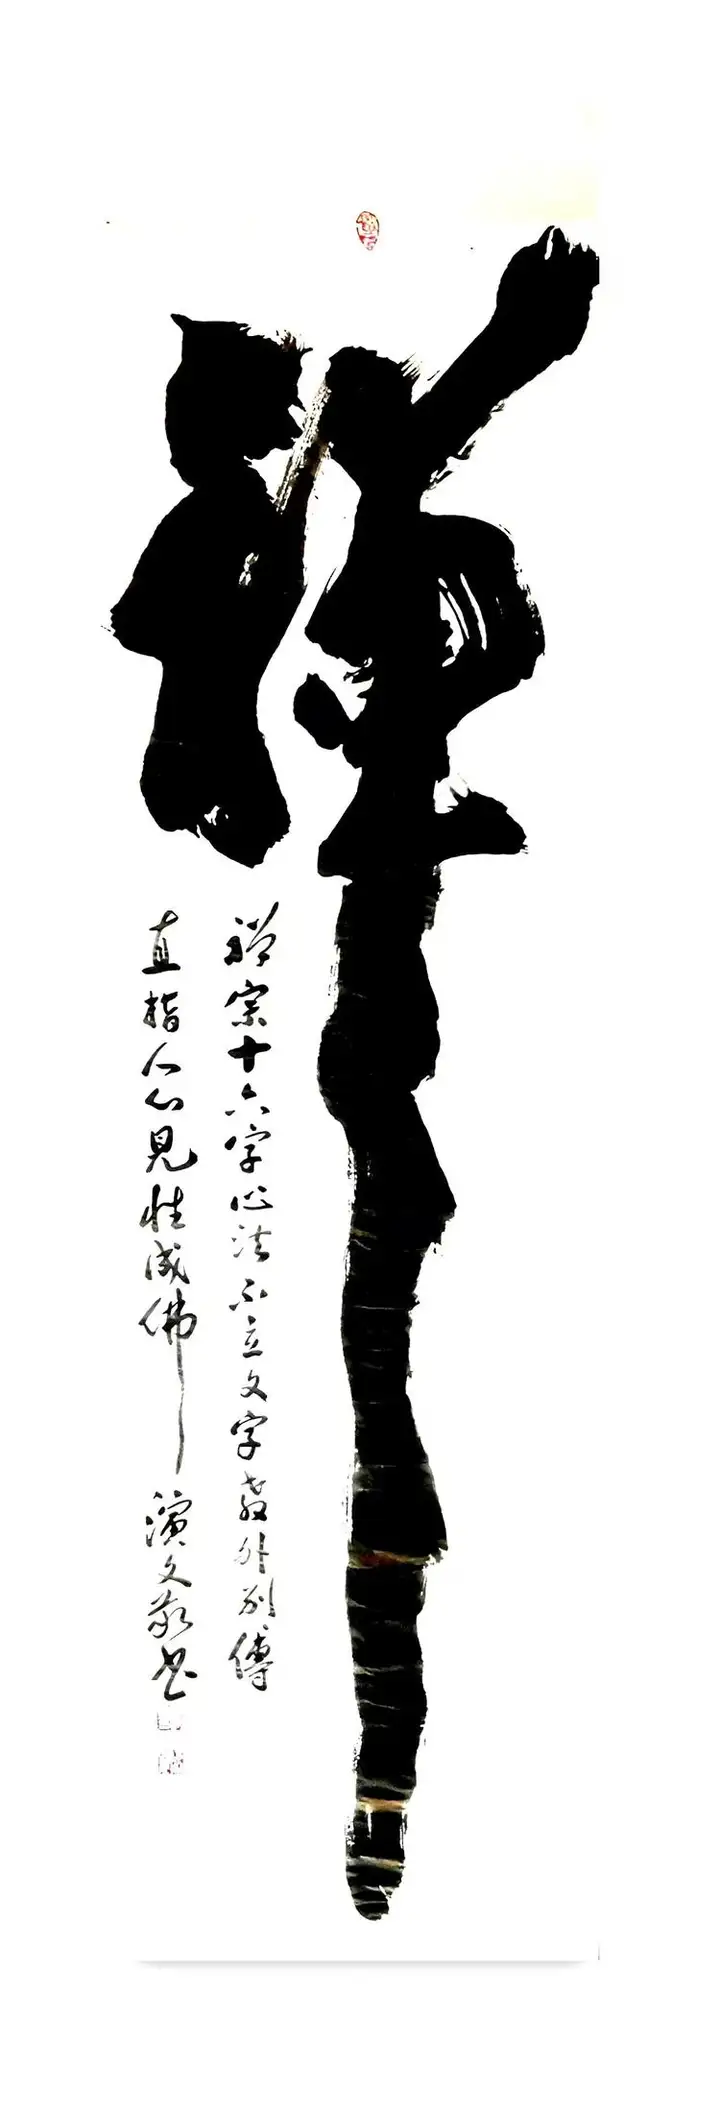 禅
禅宗十六字心法不立文字教外别傳
直指人心見性成佛
演文敬书